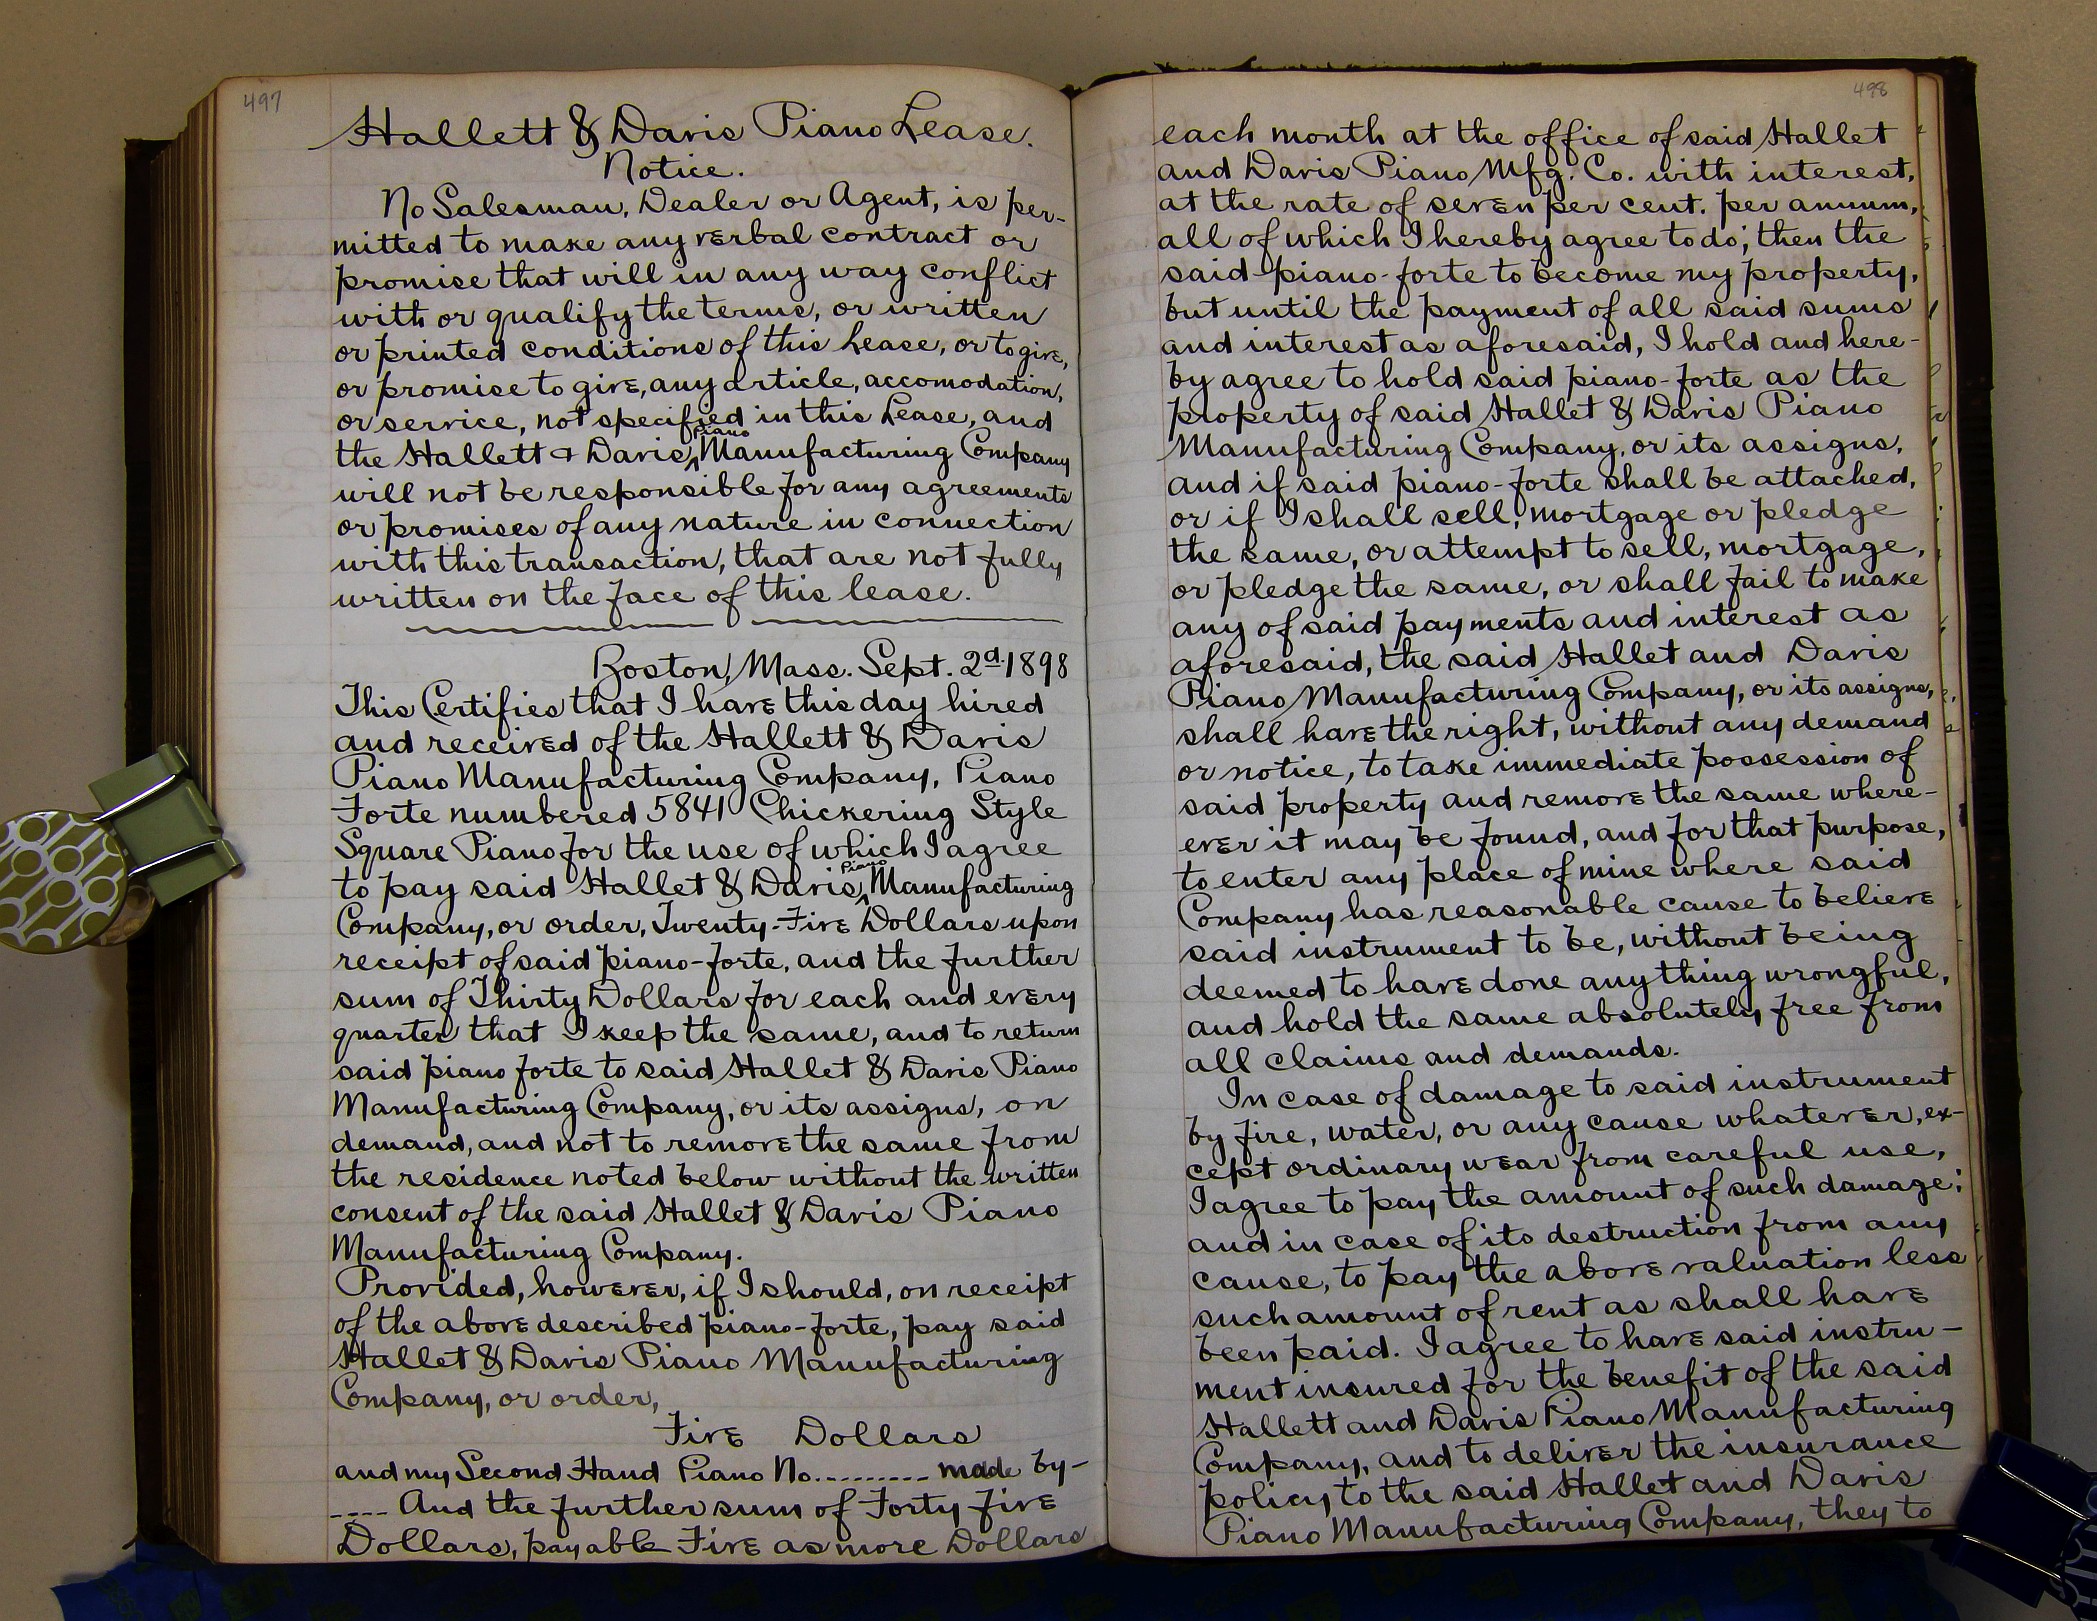 497
Hallett & Davis Piano Lease.
Notice.
No Salesman, Dealer or Agent, is per-
mitted to make any verbal contract or
promise that will in any way conflict
with or qualify the terms, or written
or printed conditions of this Lease, or to give,
or promise to give, any article, accomodation,
or service, not specified in this Lease, and
the Hallett & Davis Piano Manufacturing Company
will not be responsible for any agreements
or promises of any nature in connection
with this transaction, that are not fully
written on the face of this lease.
Boston, Mass. Sept. 2d 1898
This Certifies that I have this day hired
and received of the Hallett & Davis
Piano Manufacturing Company, Piano
Forte numbered 5841 Chickering Style
Square Piano for the use of which I agree
to pay said Hallet & Davis Piano Manufacturing
Company, or order, Twenty-Five Dollars upon
receipt of said piano-forte, and the further
sum of Thirty Dollars for each and every
quarter that I keep the same, and to return
said piano forte to said Hallet & Davis Piano
Manufacturing Company, or its assigns, on
demand, and not to remove the same from
the residence noted below without the written
consent of the said Hallet & Davis Piano
Manufacturing Company.
Provided, however, if I should, on receipt
of the above described piano-forte, pay said
Hallet & Davis Piano Manufacturing
Company, or order,
Five Dollars
and my Second Hand Piano No.......... made by-
---- And the further sum of Forty five
Dollars, payable Five as more Dollars
498
each month at the office of said Hallet
and Davis Piano Mfg. Co. with interest,
at the rate of seven per cent. per annum,
all of which I hereby agree to do; then the
said piano-forte to become my property,
but until the payment of all said sums
and interest as aforesaid, I hold and here-
by agree to hold said piano-forte as the
property of said Hallet & Davis Piano
Manufacturing Company, or its assigns,
and if said piano-forte shall be attached,
or if I shall sell, mortgage or pledge
the same, or attempt to sell, mortgage,
or pledge the same, or shall fail to make
any of said payments and interest as
aforesaid, the said Hallet and Davis
Piano Manufacturing Company, or its assigns,
shall have the right, without any demand
or notice, to take immediate possession of
said property and remove the same where-
ever it may be found, and for that purpose,
to enter any place of mine where said
Company has reasonable cause to believe
said instrument to be, without being
deemed to have done any thing wrongful,
and hold the same absolutely free from
all claims and demands.
In case of damage to said instrument
by fire, water, or any cause whatever, ex-
cept ordinary wear from careful use,
I agree to pay the amount of such damage;
and in case of its destruction from any
cause, to pay the above valuation less
such amount of rent as shall have
been paid. I agree to have said instru-
ment insured for the benefit of the said
Hallett and Davis Piano Manufacturing
Company, and to deliver the insurance
policy to the said Hallet and Davis
Piano Manufacturing Company, they to